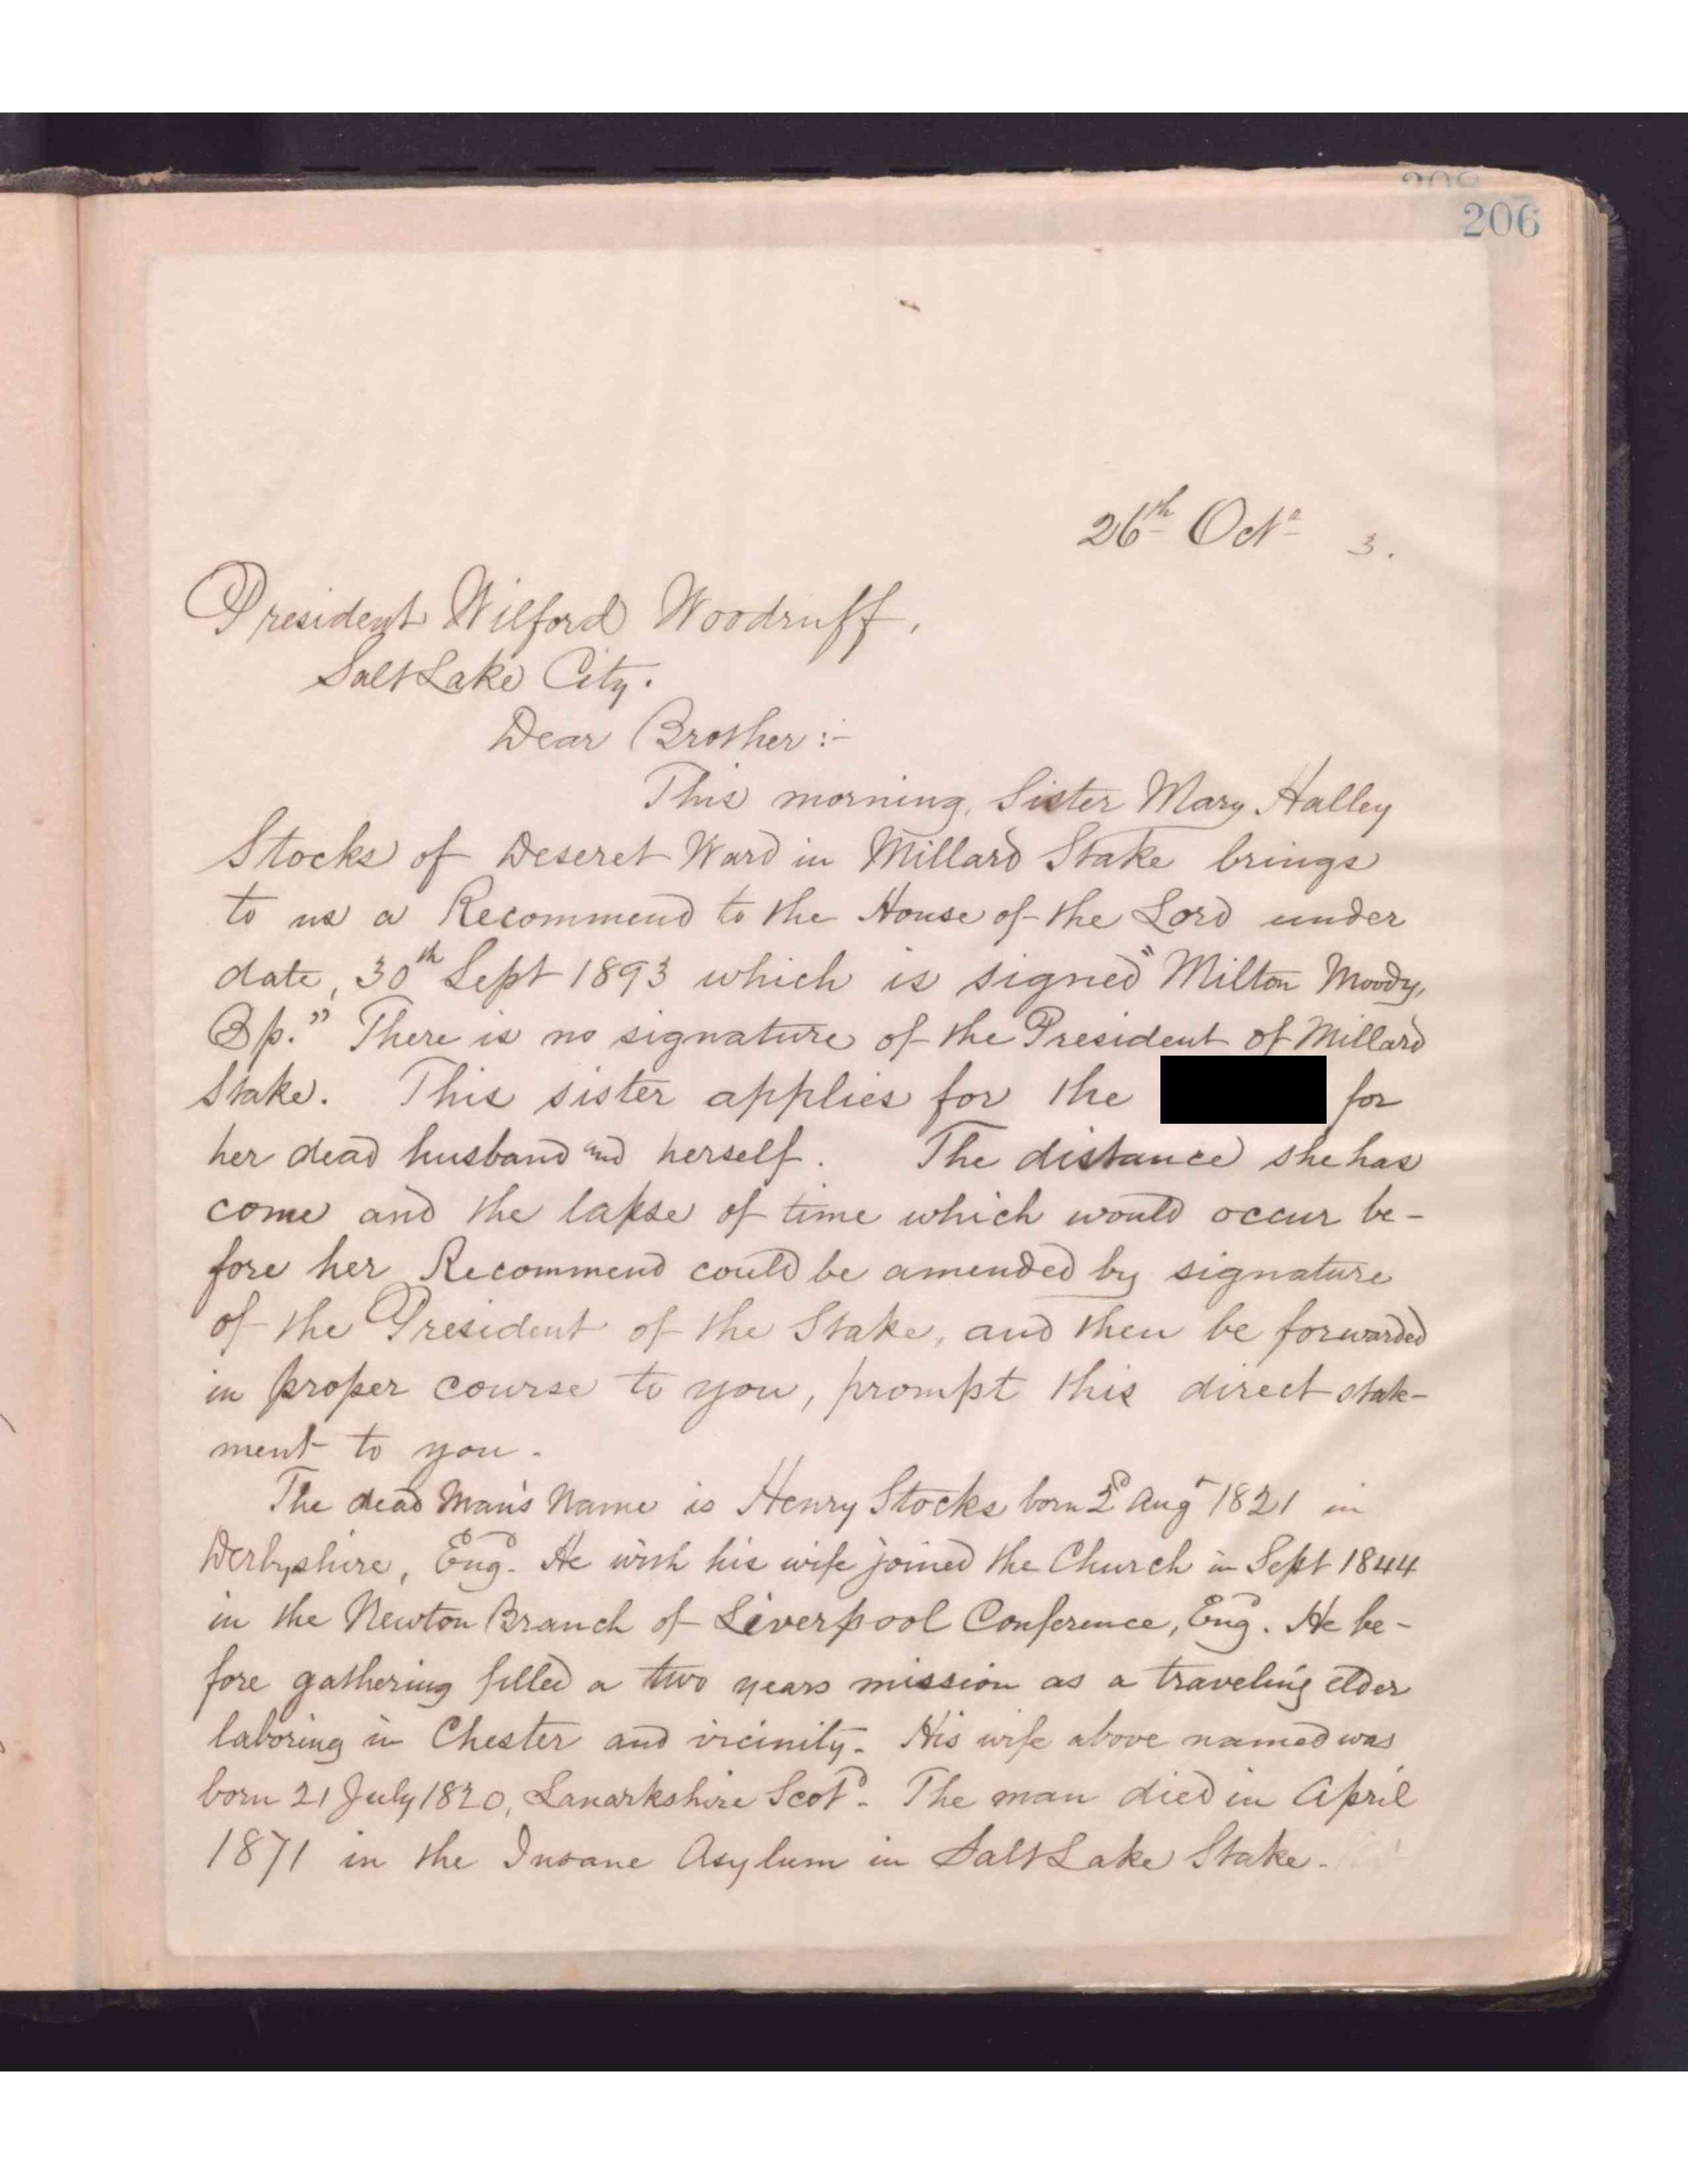 206
26th Oct. 3.
President Wilford Woodruff,
Salt Lake City.
Dear Brother:-
This morning, Sister Mary Halley
Stocks of Deseret Ward in Millard Stake brings
to us a Recommend to the House of the Lord under
date, 30th Sept 1893 which is signed "Milton Moody,
Bp." There is no signature of the President of Millard
Stake. This sister applies for the for
her dead husband and herself. The distance she has
come and the lapse of time which would occur be-
fore her Recommend could be amended by signature
of the President of the Stake, and then be forwarded
in proper course to you, prompt this direct state-
ment to you.
The dead Man's Name is Henry Stocks born 2d Augt 1821 in
Derbyshire, Eng. He with his wife joined the Church in Sept 1844
in the Newton Branch of Liverpool Conference, Eng. He be-
fore gathering filled a two years mission as a traveling elder
laboring in Chester and vicinity. His wife above named was
born 21 July 1820, Lanarkshire Scotd. The man died in April
1871 in the Insane Asylum in Salt Lake Stake.